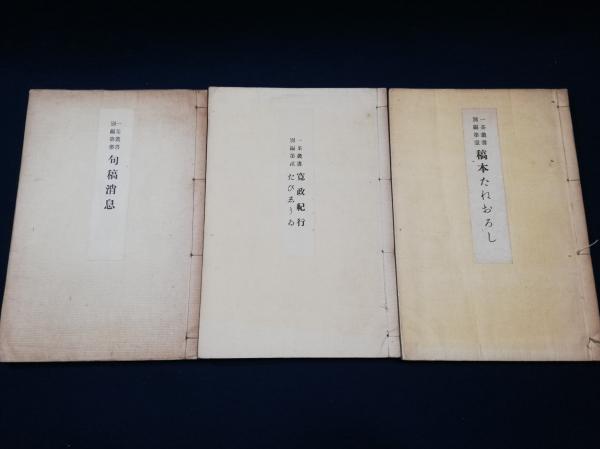 一茶叢書
別編第壹
稿本たねおろし
一茶叢書
別編第貳
寬政紀行
たびしうゐ
一茶叢書
別編第參
句稿消息